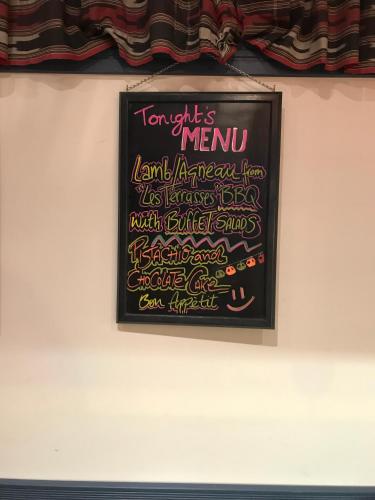 Tonight's
MENU
Lamb/Agneau from
"Les Terrasses" BBQ
with BUFFET SALADS
PISTACHIO and
CHOCOLATE CAKE
Bon Appétit